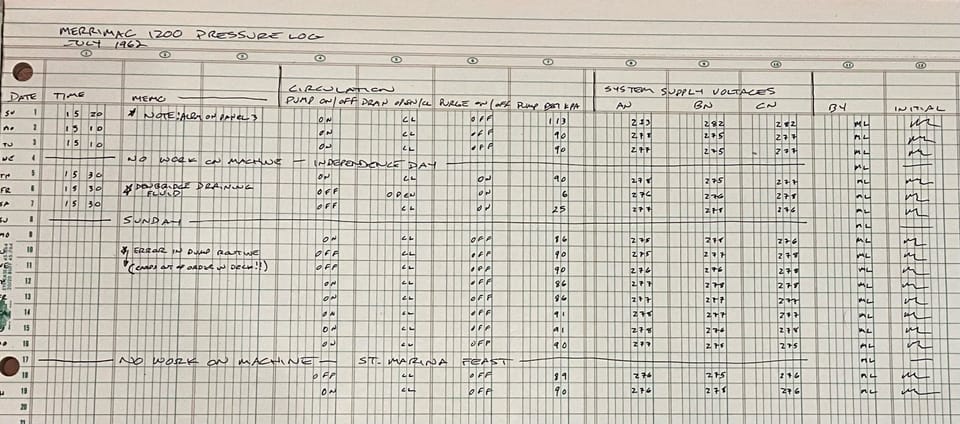 MERRIMAC 1200 PRESSURE LOG
JULY 1962
1 2 3 4 5 6 7 8 9 10 11 12
CIRCULATION SYSTEM SUPPLY VOLTAGES
DATE TIME MEMO PUMP ON/OFF DRAIN OPEN/CL PURGE ON/OFF PUMP KPA AN BN CN BY INITIAL
SU 1 15 20 * NOTE: ON PANEL 3 ON CL OFF 113 282 282 ML
MO 2 15 10 ON CL OFF 90 278 275 277 ML
TU 3 15 10 ON CL OFF 90 277 275 277 ML
WE 4 NO WORK ON MACHINE — INDEPENDENCE DAY ML
TH 5 15 30 ON CL ON 90 278 275 277 ML
FR 6 15 30 * DRAINING OFF OPEN ON 6 276 276 278 ML
FLUID
SA 7 15 30 OFF CL ON 25 277 278 276 ML
SU 8 SUNDAY ML
MO 9 ON CL OFF 86 275 278 276 ML
10 * ERROR IN DUMP ROUTINE OFF CL OFF 90 275 277 278 ML
11 * (CARDS OUT OF ORDER IN DECK!!) OFF CL OFF 90 276 276 278 ML
12 ON CL OFF 86 277 278 278 ML
13 ON CL OFF 86 277 277 277 ML
14 ON CL OFF 91 278 277 277 ML
15 ON CL OFF 91 278 276 278 ML
16 ON CL OFF 90 277 278 275 ML
17 NO WORK ON MACHINE — ST. MARINA FEAST ML
18 OFF CL OFF 89 276 275 276 ML
19 ON CL OFF 90 276 278 276 ML
20